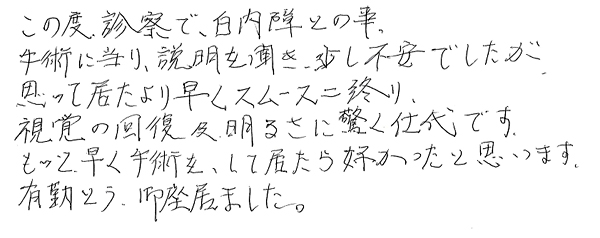 この度、診察で、白内障との事、
手術に当り、説明を聞き、少し不安でしたが、
思って居たより早くスムースに終り、
視覚の回復及明るさに驚く仕代です。
もっと早く手術を、して居たら好かったと思います。
有勤とう、御座居ました。